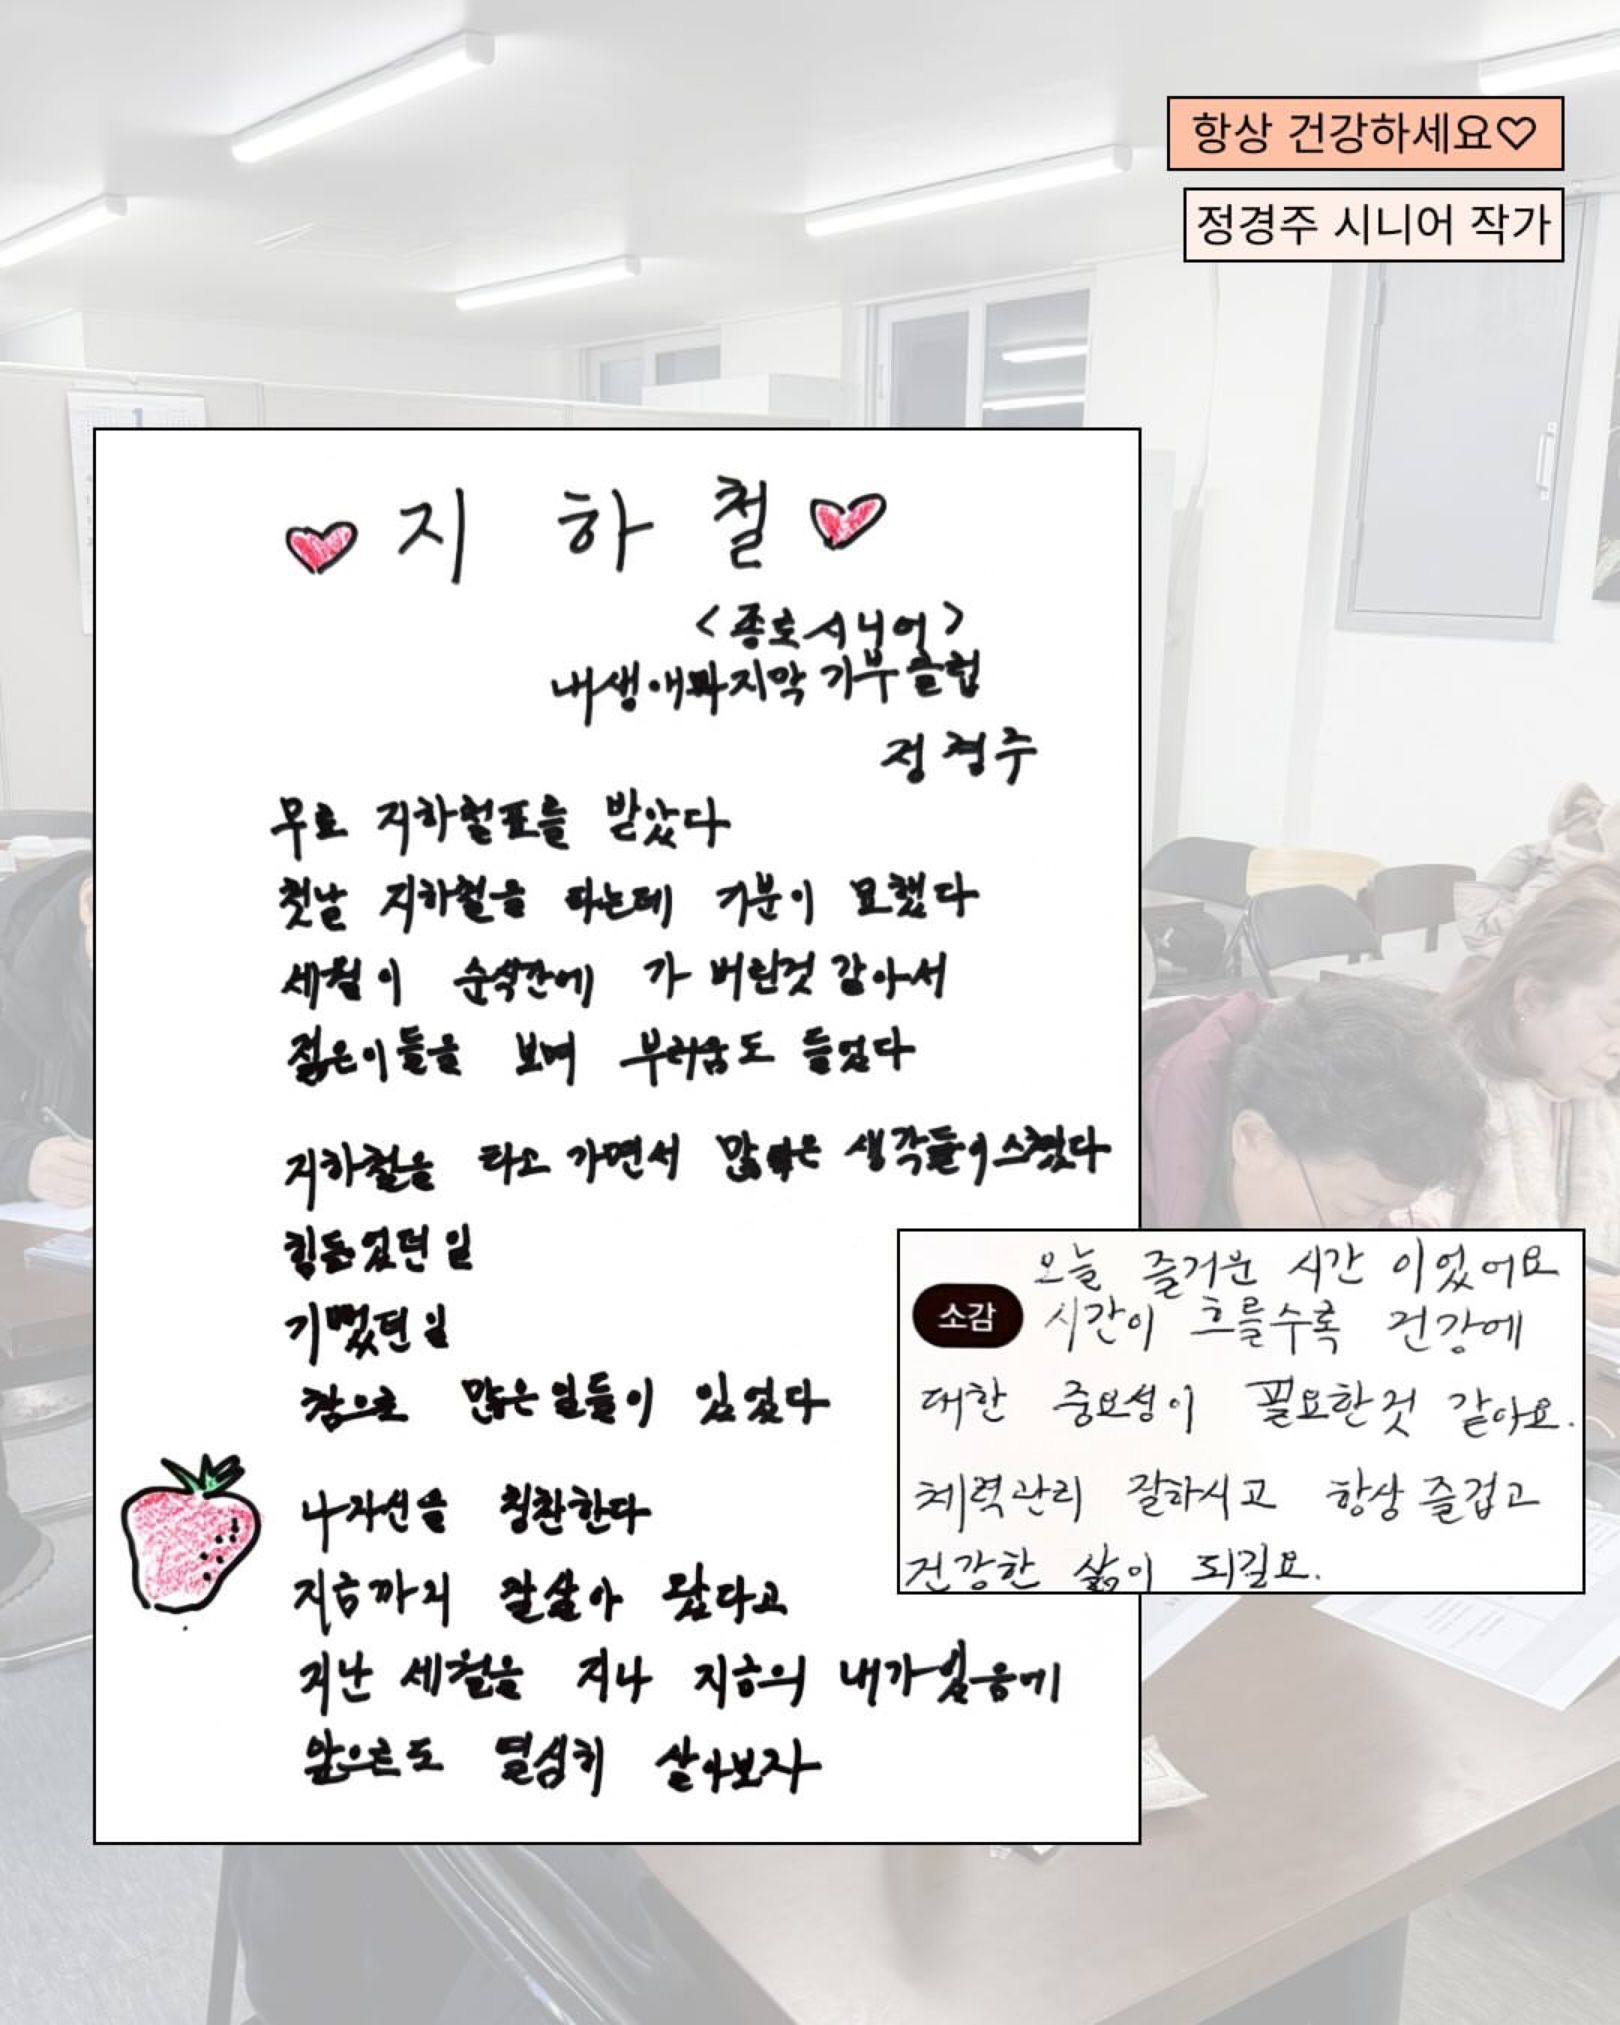 항상 건강하세요♡
정경주 시니어 작가
지하철
<종로시니어>
내생애마지막 기부클럽
정경주
무료 지하철표를 받았다
첫날 지하철을 타는데 기분이 묘했다
세월이 순식간에 가 버린것 같아서
젊은이들을 보며 부러움도 들었다
지하철을 타고 가면서 많은 생각들이 스쳤다
힘들었던 일
기뻤던 일
참으로 많은일들이 있었다
나자신을 칭찬한다
지금까지 잘살아 왔다고
지난 세월을 지나 지금의 내가 있음에
앞으로도 열심히 살아보자
오늘 즐거운 시간 이었어요
소감 시간이 흐를수록 건강에
대한 중요성이 필요한것 같아요.
체력관리 잘하시고 항상 즐겁고
건강한 삶이 되길요.